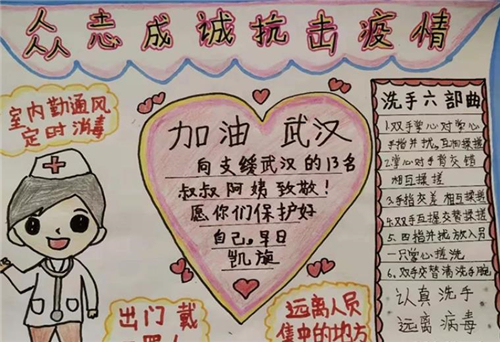 众志成诚抗击疫情
室内勤通风
定时消毒
加油 武汉
向支缓武汉的13名
叔叔阿姨致敬!
愿你们保护好
自己,早日
凯旋
出门戴
远离人员
集中的地方
洗手六部曲
1.双手掌心对掌心
手指并扰,互相揉搓
2.掌心对手背交错
相互揉搓
3.手指交差 相互揉搓
4.双手互握交替揉搓
5.四指并扰放入另
一只掌心搓洗
6.双手交替清洗手腕
认真洗手
远离病毒